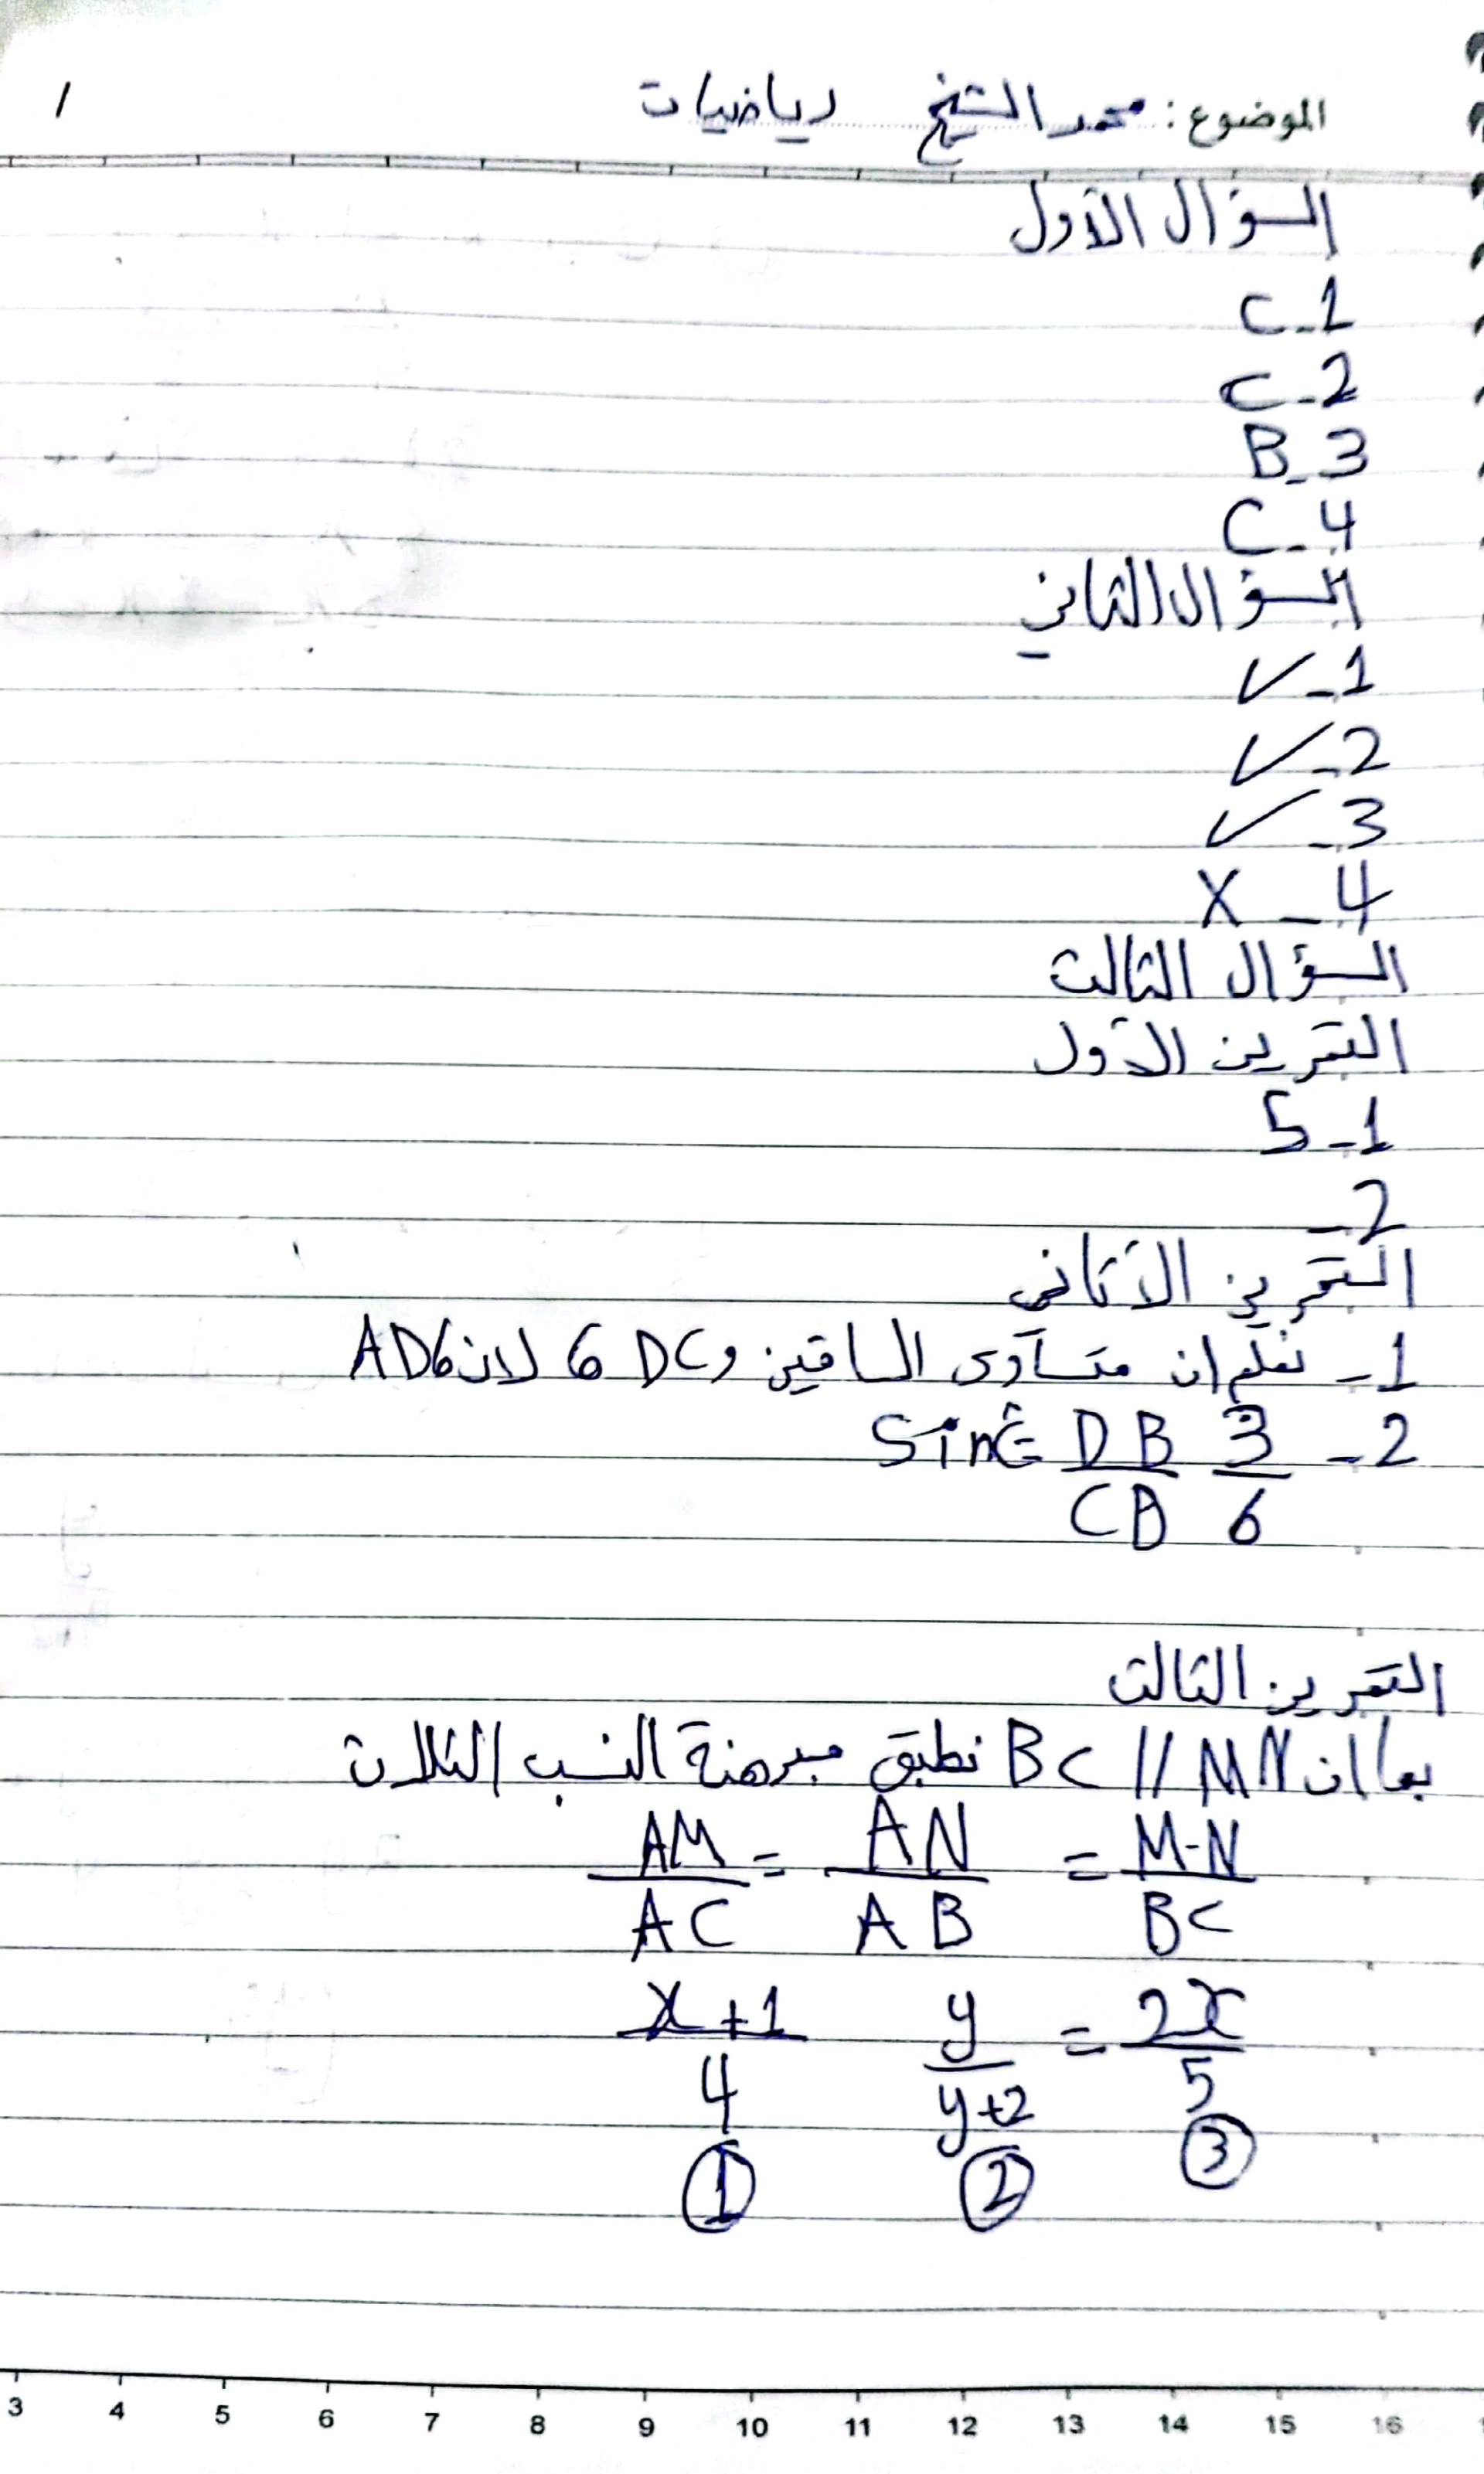 الموضوع: محمد الشيخ رياضيات
1
السؤال الأول
C - 1
C - 2
B - 3
C - 4
السؤال الثاني
✓ - 1
✓ - 2
✓ - 3
X - 4
السؤال الثالث
التمرين الأول
5 - 1
2 -
التمرين الاثاني
1 - نعلم ان متساوى الساقين و DC 6 لان AD6
2 - Sin Ĉ = DB/CB 3/6
التمرين الثالث
بما ان BC // MN نطبق مبرهنة النسب الثلاث
AM/AC = AN/AB = M-N/BC
x+1/4 y/y+2 = 2x/5
① ② ③
3 4 5 6 7 8 9 10 11 12 13 14 15 16